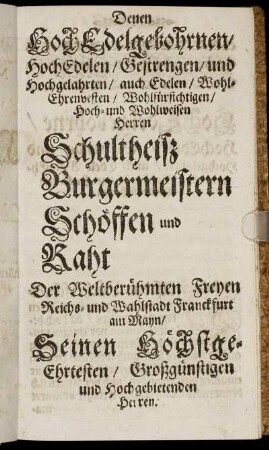 Denen
HochEdelgebohrnen/
HochEdelen/ Gestrengen/ und
Hochgelahrten/ auch Edelen/ Wohl-
Ehrenvesten/ Wohlfürsichtigen/
Hoch- und Wohlweisen
Herren
Schultheiß
Burgermeistern
Schöffen und
Raht
Der Weltberühmten Freyen
Reichs- und Wahlstadt Franckfurt
am Mayn/
Seinen Höchstge-
Ehrtesten/ Großgünstigen
und Hochgebietenden
Herren.